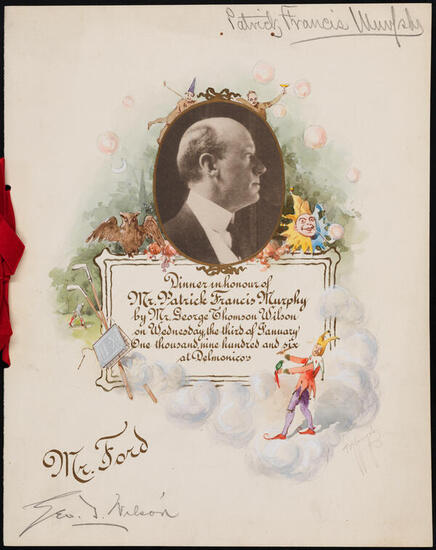 Patrick Francis Murphy
Dinner in honour of
Mr. Patrick Francis Murphy
by Mr. George Thomson Wilson
on Wednesday, the third of January
One thousand, nine hundred and six
at Delmonico's
Mr. Ford
Geo. T. Wilson